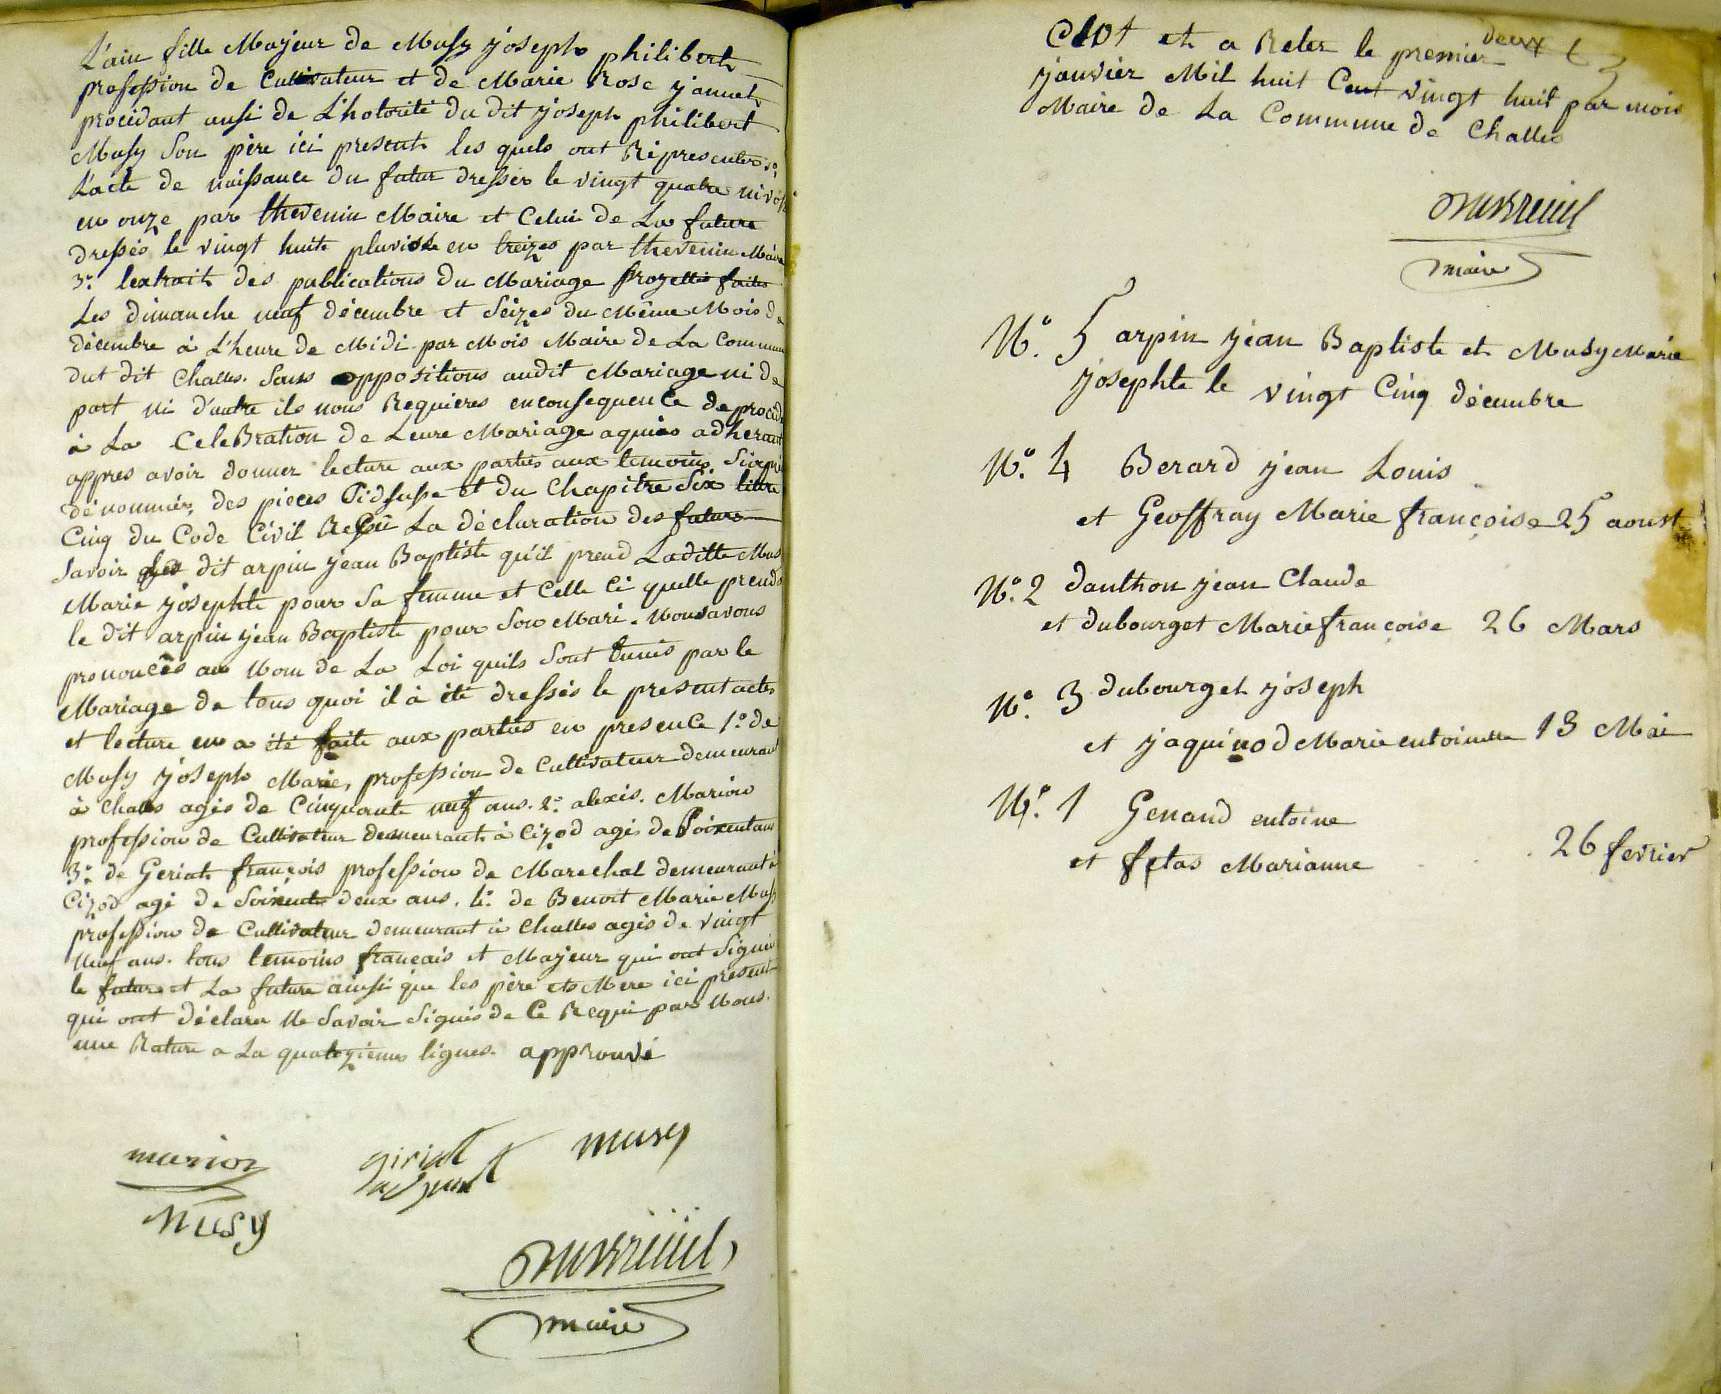 L'ain fille Majeur de Musy joseph philibert
profession de Cultivateur et de Marie Rose janet
procédant ausi de L'hotorité du dit joseph philibert
Musy Son père ici present les quels ont Réprésenter 1º
L'acte de naissance du futur dresser le vingt quatre nivôse
en onze par thevenin Maire et Celui de La future
dressés le vingt huite pluviose en treizes par thevenin Maire
3º lextrait des publications du Mariage projetté faites
Les dimanche neuf décembre et Seizes du Même Mois de
décembre à L'heure de Midi par Mois Maire de La Commune
dut dit Challes. Sans oppositions audit Mariage ni de
part ni d'autre ils nous Requieres enconsequence de procéder
à La CeleBration de Leure Mariage aquiés adherant
appres avoir donner lecture aux parties aux temoins
dénommér des pieces Cidsusse et du Chapitre Six titre
Cinq du Code Civil Reçû La déclaration des futurs
Savoir dit arpin jean Baptiste qu'il prend Laditte Musy
Marie josephte pour Sa femme et Celle Ci quelle prends
le dit arpin jean Baptiste pour Son Mari. Nousavons
prenoncés au Nom de La Loi quils Sont Eunis par le
Mariage de tous quoi il à été dressés le present actes
et lecture en a été faite aux parties en presence 1º de
Musy joseph Marie, profession de Cultivateur demeurant
à Challes agés de Cinquante neuf ans. 2º alexis. Marion
profession de Cultivateur demeurant à Cizod agé de Soixentans
3º de Geriat françois profession de Marechal demeurant à
Cizod agé de Soixente deux ans. 4º de Benoit Marie Musy
profession de Cultivateur demeurant à Challes agés de vingt
Neuf ans. tous temoins francais et Majeur qui ont Signés
le futur et La future ainsi que les père et Mere ici present
qui ont déclarer Ne Savoir Signés de Ce Requi par Nous.
une Rature a La quatorzieme lignes. approuvé
marion
giriat
musy
Musy
Dubreuil
maire
Clot et a Reter le premier deux
janvier Mil huit Cent vingt huit par mois
Maire de La Commune de Challes
Dubreuil
maire
Nº. 5 arpin jean Baptiste et Musy Marie
josephte le vingt Cinq décembre
Nº. 4 Berard jean Louis
et Geoffray Marie françoise 25 aoust
Nº. 2 danthon jean Claude
et dubourget Marie françoise 26 Mars
Nº. 3 dubourget joseph
et jaquinod Marie entoinette 13 Mai
Nº. 1 Genand entoine
et fetas Marianne . . 26 fevrier